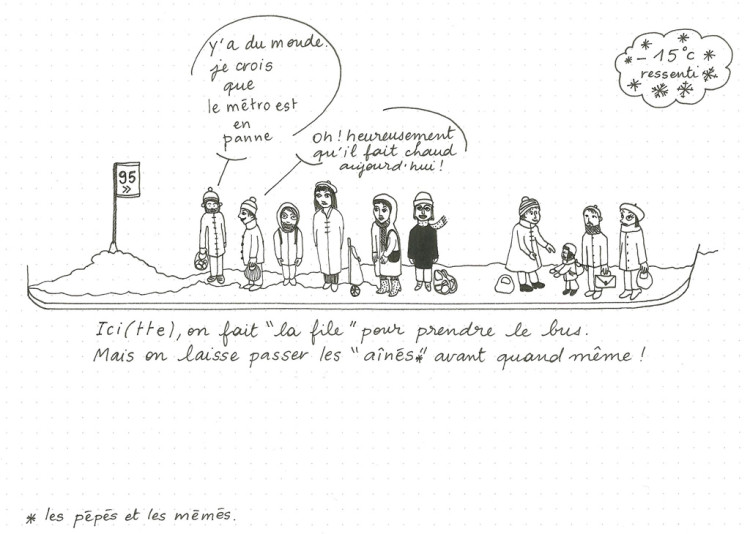 y'a du monde.
je crois
que
le métro est
en
panne
oh! heureusement
qu'il fait chaud
aujourd'hui!
-15°c
ressenti
95
»
Ici(tte), on fait "la file" pour prendre le bus.
Mais on laisse passer les "aînés*" avant quand même !
* les pépés et les mémés.